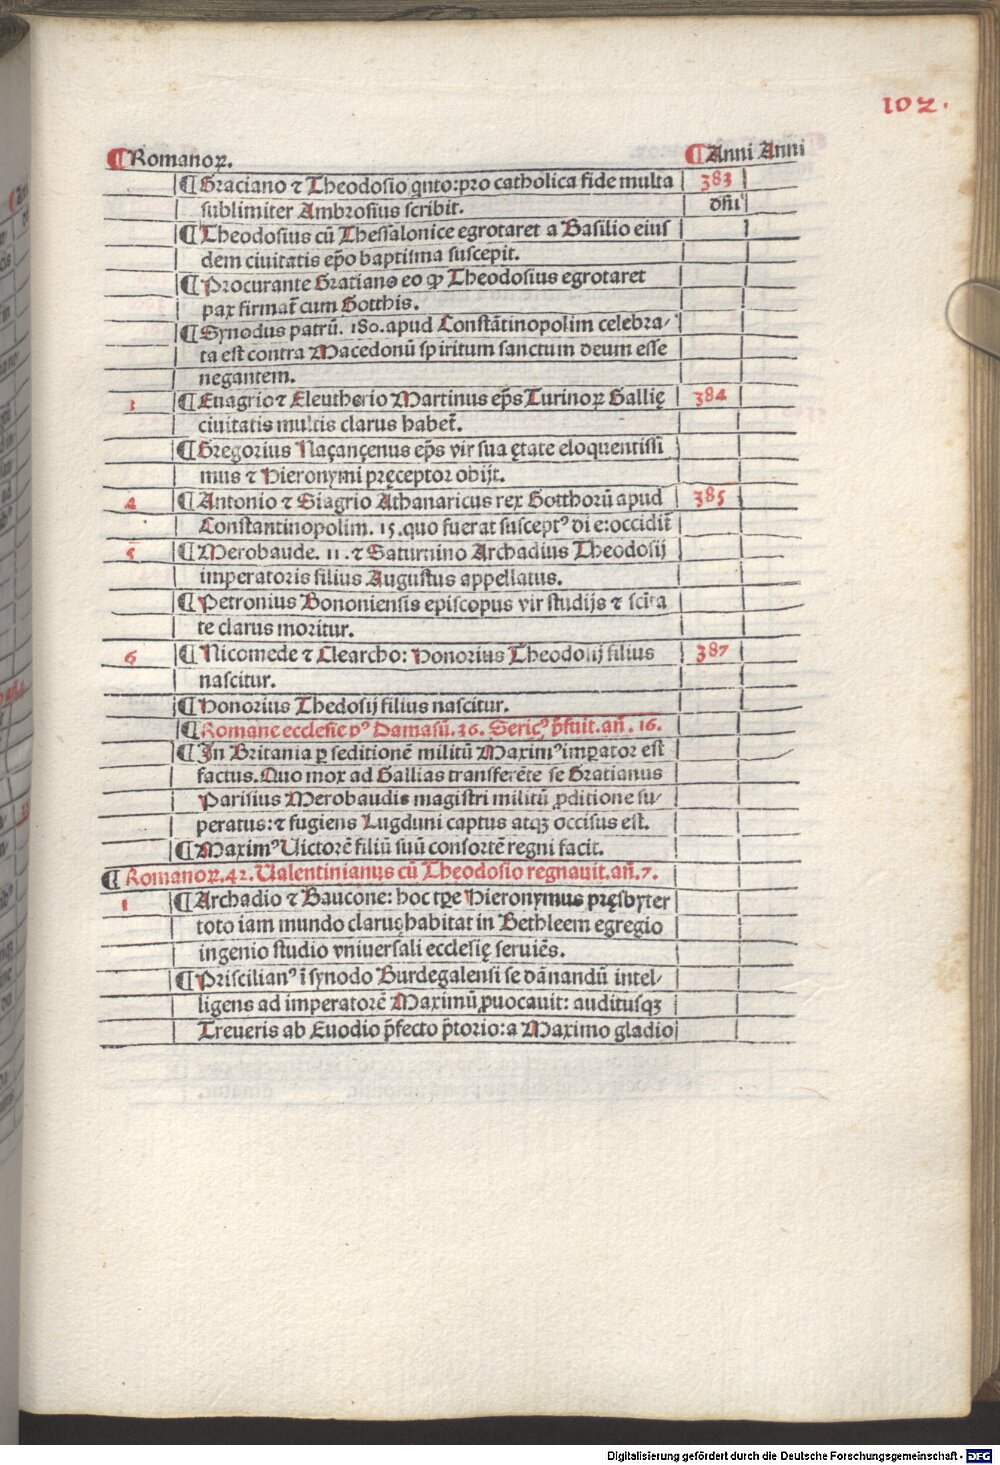 102.
¶Romanoꝝ. ¶Anni Anni
¶Graciano ⁊ Theodosio qnto:pro catholica fide multa 383
sublimiter Ambrosius scribit. dñi
¶Theodosius cũ Thessalonice egrotaret a Basilio eius
dem ciuitatis ep̃o baptisma suscepit.
¶Procurante Gratiano eo ꝙ Theodosius egrotaret
pax firmat̃ cum Gotthis.
¶Synodus patrũ. 180. apud Constãtinopolim celebra⸗
ta est contra Macedonũ spiritum sanctum deum esse
negantem.
3 ¶Euagrio⁊ Eleutherio Martinus ep̃s Turinoꝝ Gallię 384
ciuitatis multis clarus habet̃.
¶Gregorius Naçançenus ep̃s vir sua ętate eloquentissi
mus ⁊ Hieronymi pręceptor obijt.
4 ¶Antonio ⁊ Siagrio Athanaricus rex Gotthorũ apud 385
Constantinopolim. 15. quo fuerat suscept⁹ di e:occidit̃
5 ¶Merobaude. 11. ⁊ Saturnino Archadius Theodosij
imperatoris filius Augustus appellatus.
¶Petronius Bononiensis episcopus vir studijs ⁊ scit̃a
te clarus moritur.
6 ¶Nicomede ⁊ Clearcho: Honorius Theodosij filius 387
nascitur.
¶Honorius Thedosij filius nascitur.
¶Romane ecclesie p⁹ Damasũ. 36. Seric⁹ p̃fuit. añ. 16.
¶In Britania ꝑ seditionẽ militũ Maxim⁹ imꝑator est
factus. Quo mox ad Gallias transferẽte se Gratianus
Parisius Merobaudis magistri militũ ꝓditione su⸗
peratus:⁊ fugiens Lugduni captus atqꝫ occisus est.
¶Maxim⁹ Uictorẽ filiũ suũ consortẽ regni facit.
¶Romanoꝝ. 42. Ualentinianus cũ Theodosio regnauit. añ. 7.
1 ¶Archadio ⁊ Baucone: hoc tꝑe Hieronymus pręsbyter
toto iam mundo clarus habitat in Bethleem egregio
ingenio studio vniuersali ecclesię seruiẽs.
¶Priscilian⁹ ĩ synodo Burdegalensi se dãnandũ intel⸗
ligens ad imperatorẽ Maximũ ꝓuocauit: auditusqꝫ
Treueris ab Euodio p̃fecto p̃torio:a Maximo gladio
Digitalisierung gefördert durch die Deutsche Forschungsgemeinschaft - DFG